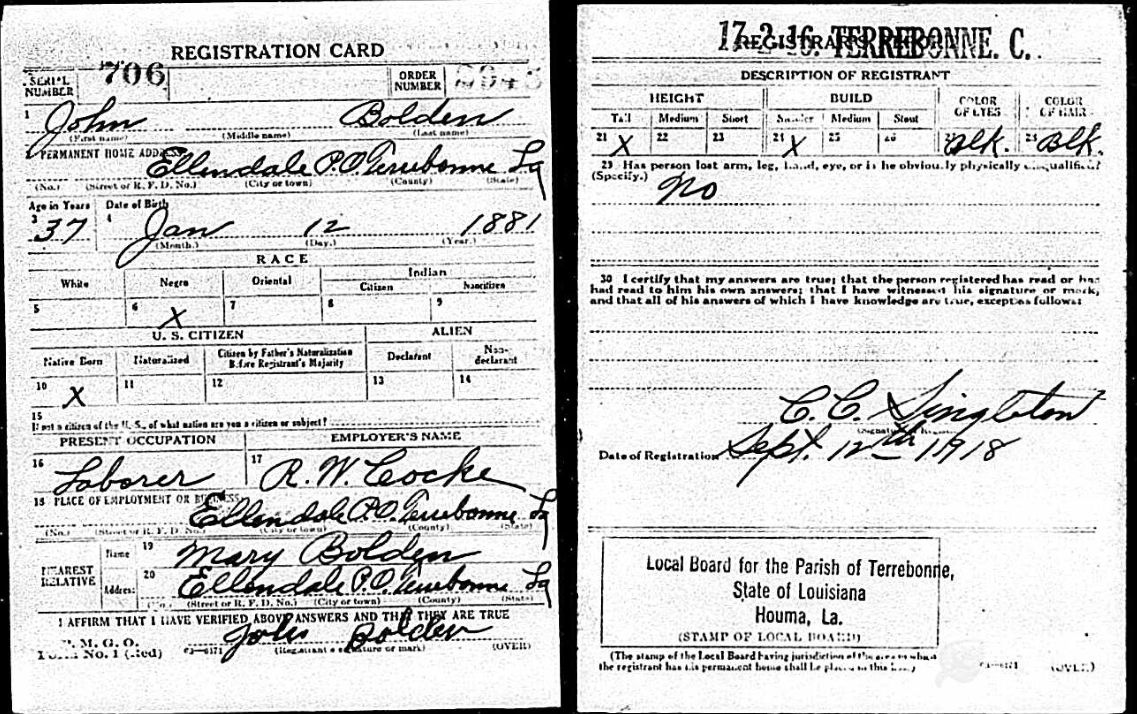 REGISTRATION CARD
SERIAL NUMBER 706 ORDER NUMBER
1 John Bolden
(First name) (Middle name) (Last name)
2 PERMANENT HOME ADDRESS
Ellendale P.O. Terrebonne La
(No.) (Street or R. F. D. No.) (City or town) (County) (State)
Age in Years Date of Birth
3 37 4 Jan 12 1881
(Month.) (Day.) (Year.)
RACE
White Negro Oriental Indian
Citizen Noncitizen
5 6 X 7 8 9
U. S. CITIZEN ALIEN
Native Born Naturalized Citizen by Father's Naturalization Before Registrant's Majority Declarant Non-declarant
10 X 11 12 13 14
15
If not a citizen of the U. S., of what nation are you a citizen or subject?
PRESENT OCCUPATION EMPLOYER'S NAME
16 Laborer 17 R. W. Cocke
18 PLACE OF EMPLOYMENT OR BUSINESS
Ellendale P.O. Terrebonne La
(No.) (Street or R. F. D. No.) (City or town) (County) (State)
NEAREST RELATIVE
Name 19 Mary Bolden
Address 20 Ellendale P.O. Terrebonne La
(No.) (Street or R. F. D. No.) (City or town) (County) (State)
I AFFIRM THAT I HAVE VERIFIED ABOVE ANSWERS AND THAT THEY ARE TRUE
P. M. G. O.
Form No. 1 (Red) 03—6171 John Bolden
(Registrant's signature or mark) (OVER)
17-2-16. TERREBONNE. C.
DESCRIPTION OF REGISTRANT
HEIGHT BUILD COLOR OF EYES COLOR OF HAIR
Tall Medium Short Slender Medium Stout
21 X 22 23 24 X 25 26 27 Blk. 28 Blk.
29 Has person lost arm, leg, hand, eye, or is he obviously physically disqualified?
(Specify.) No
30 I certify that my answers are true; that the person registered has read or has
had read to him his own answers; that I have witnessed his signature or mark,
and that all of his answers of which I have knowledge are true, except as follows:
C. C. Singleton
Date of Registration Sept. 12th 1918
Local Board for the Parish of Terrebonne,
State of Louisiana
Houma, La.
(STAMP OF LOCAL BOARD)
(The stamp of the Local Board having jurisdiction of the area in which
the registrant has his permanent home shall be placed in this box.)
03—6171 (OVER)